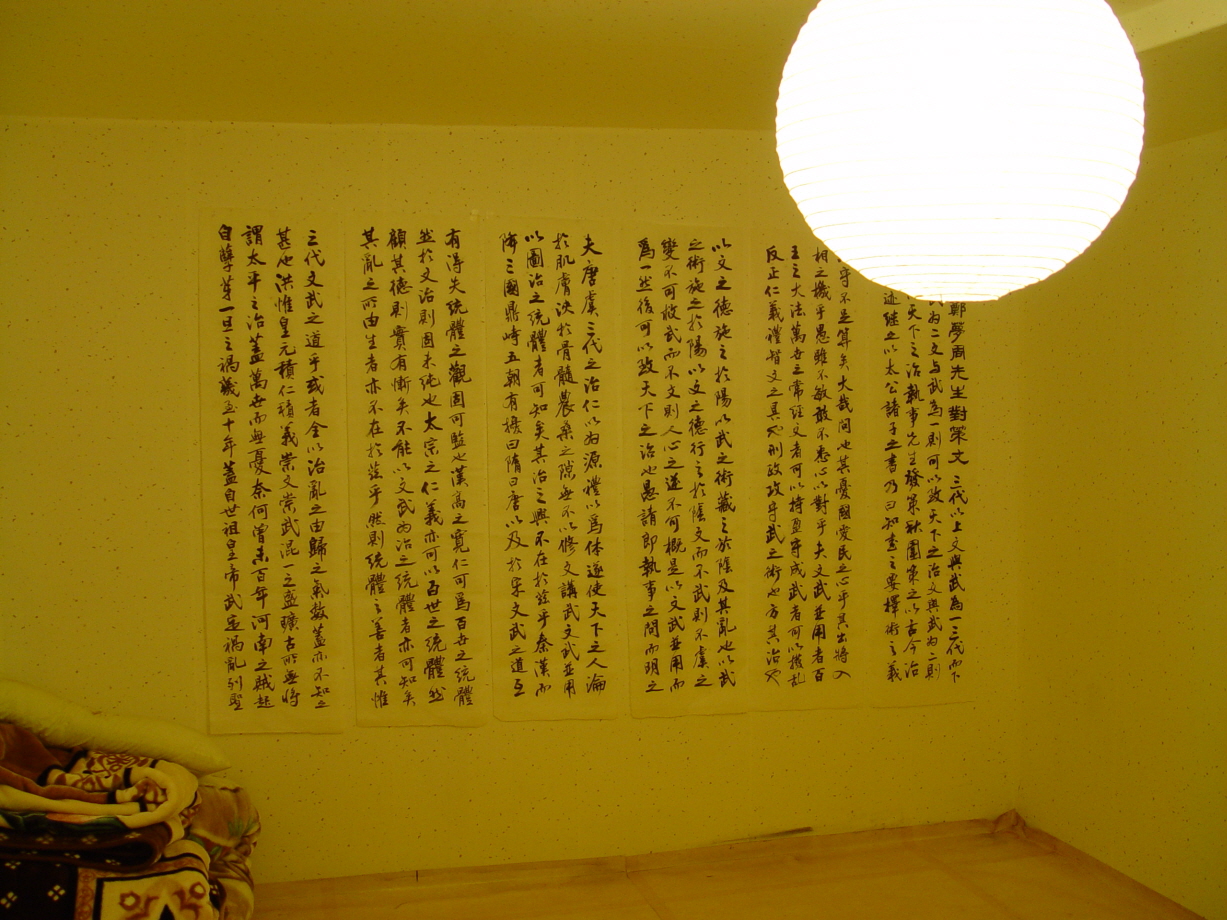 鄭夢周先生對策文 三代以上文與武為一三代而下
武為二文与武為一則可以致天下之治文與武為二則
天下之治執事先生發策秋圍策之以古今治
迹継之以太公諸子之書乃曰知畫之要擇術之義
守不足算矣大哉問也其憂國愛民之心乎其出將入
相之機乎愚雖不敏敢不悉心以對乎夫文武並用者百
王之大法萬世之常經文者可以持盈守成武者可以撥乱
反正仁義禮智文之具也刑政攻守武之術也方其治也
以文之德施之於陽以武之術藏之於陰及其亂也以武
之術施之於陽以文之德行之於陰文而不武則不虞之
變不可收武而不文則人心之遂不可概是以文武並用而
為一然後可以致天下之治也愚請即執事之問而明之
夫唐虞三代之治仁以為源禮以為体遂使天下之人淪
於肌膚浹於骨髓農桑之隙無不以修文講武文武並用
以圖治之統體者可知矣其治之興不在於玆乎秦漢而
降三國鼎峙五朝有擾曰隋曰唐以及於宋文武之道互
有得失統體之觀固可監也漢高之寬仁可為百世之統體
然於文治則固未純也太宗之仁義亦可以百世之統體然
顧其德則實有慚矣不能以文武為治之統體者亦可知矣
其亂之所由生者亦不在於玆乎然則統體之善者其惟
三代文武之道乎或者全以治亂之由歸之氣數蓋亦不知之
甚也洪惟皇元積仁積義崇文崇武混一之盛曠古所無將
謂太平之治蓋萬世而無憂奈何曾未百年河南之賊起
自孽芽一旦之禍識至十年蓋自世祖皇帝武定禍亂列聖